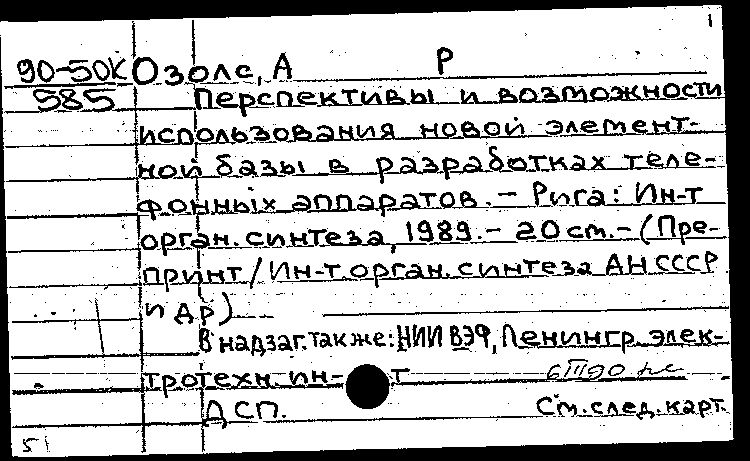 1
90-50К Озолс, А Р
585 Перспективы и возможности
использования новой элемент-
ной базы в разработках теле-
фонных аппаратов. – Рига: Ин-т
орган. синтеза, 1989. – 20 ст. – (Пре-
принт / Ин-т орган. синтеза АН СССР
и др)
В надзаг. также: НИИ ВЭФ, Ленингр. элек-
тротехн. ин-т
6 III 90
ДСП. См. след. карт.
51